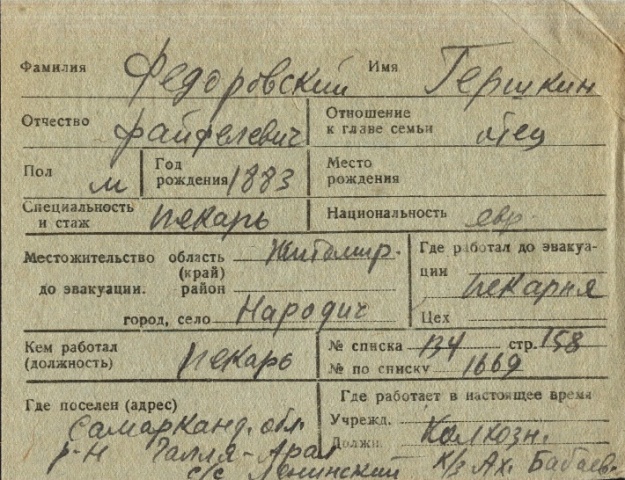 Фамилия Федоровский Имя Гершкин
Отчество Файфелевич Отношение к главе семьи отец
Пол м Год рождения 1883 Место рождения
Специальность и стаж пекарь Национальность евр.
Местожительство до эвакуации. область (край) Житомир.
район
город, село Народич
Где работал до эвакуации пекарня
Цех
Кем работал (должность) пекарь
№ списка 134 стр. 158
№ по списку 1669
Где поселен (адрес)
Самарканд. обл.
р-н Галля-Арал
с/с Ленинский
Где работает в настоящее время
Учрежд. Колхозн.
Должн.
к/з Ах. Бабаев.